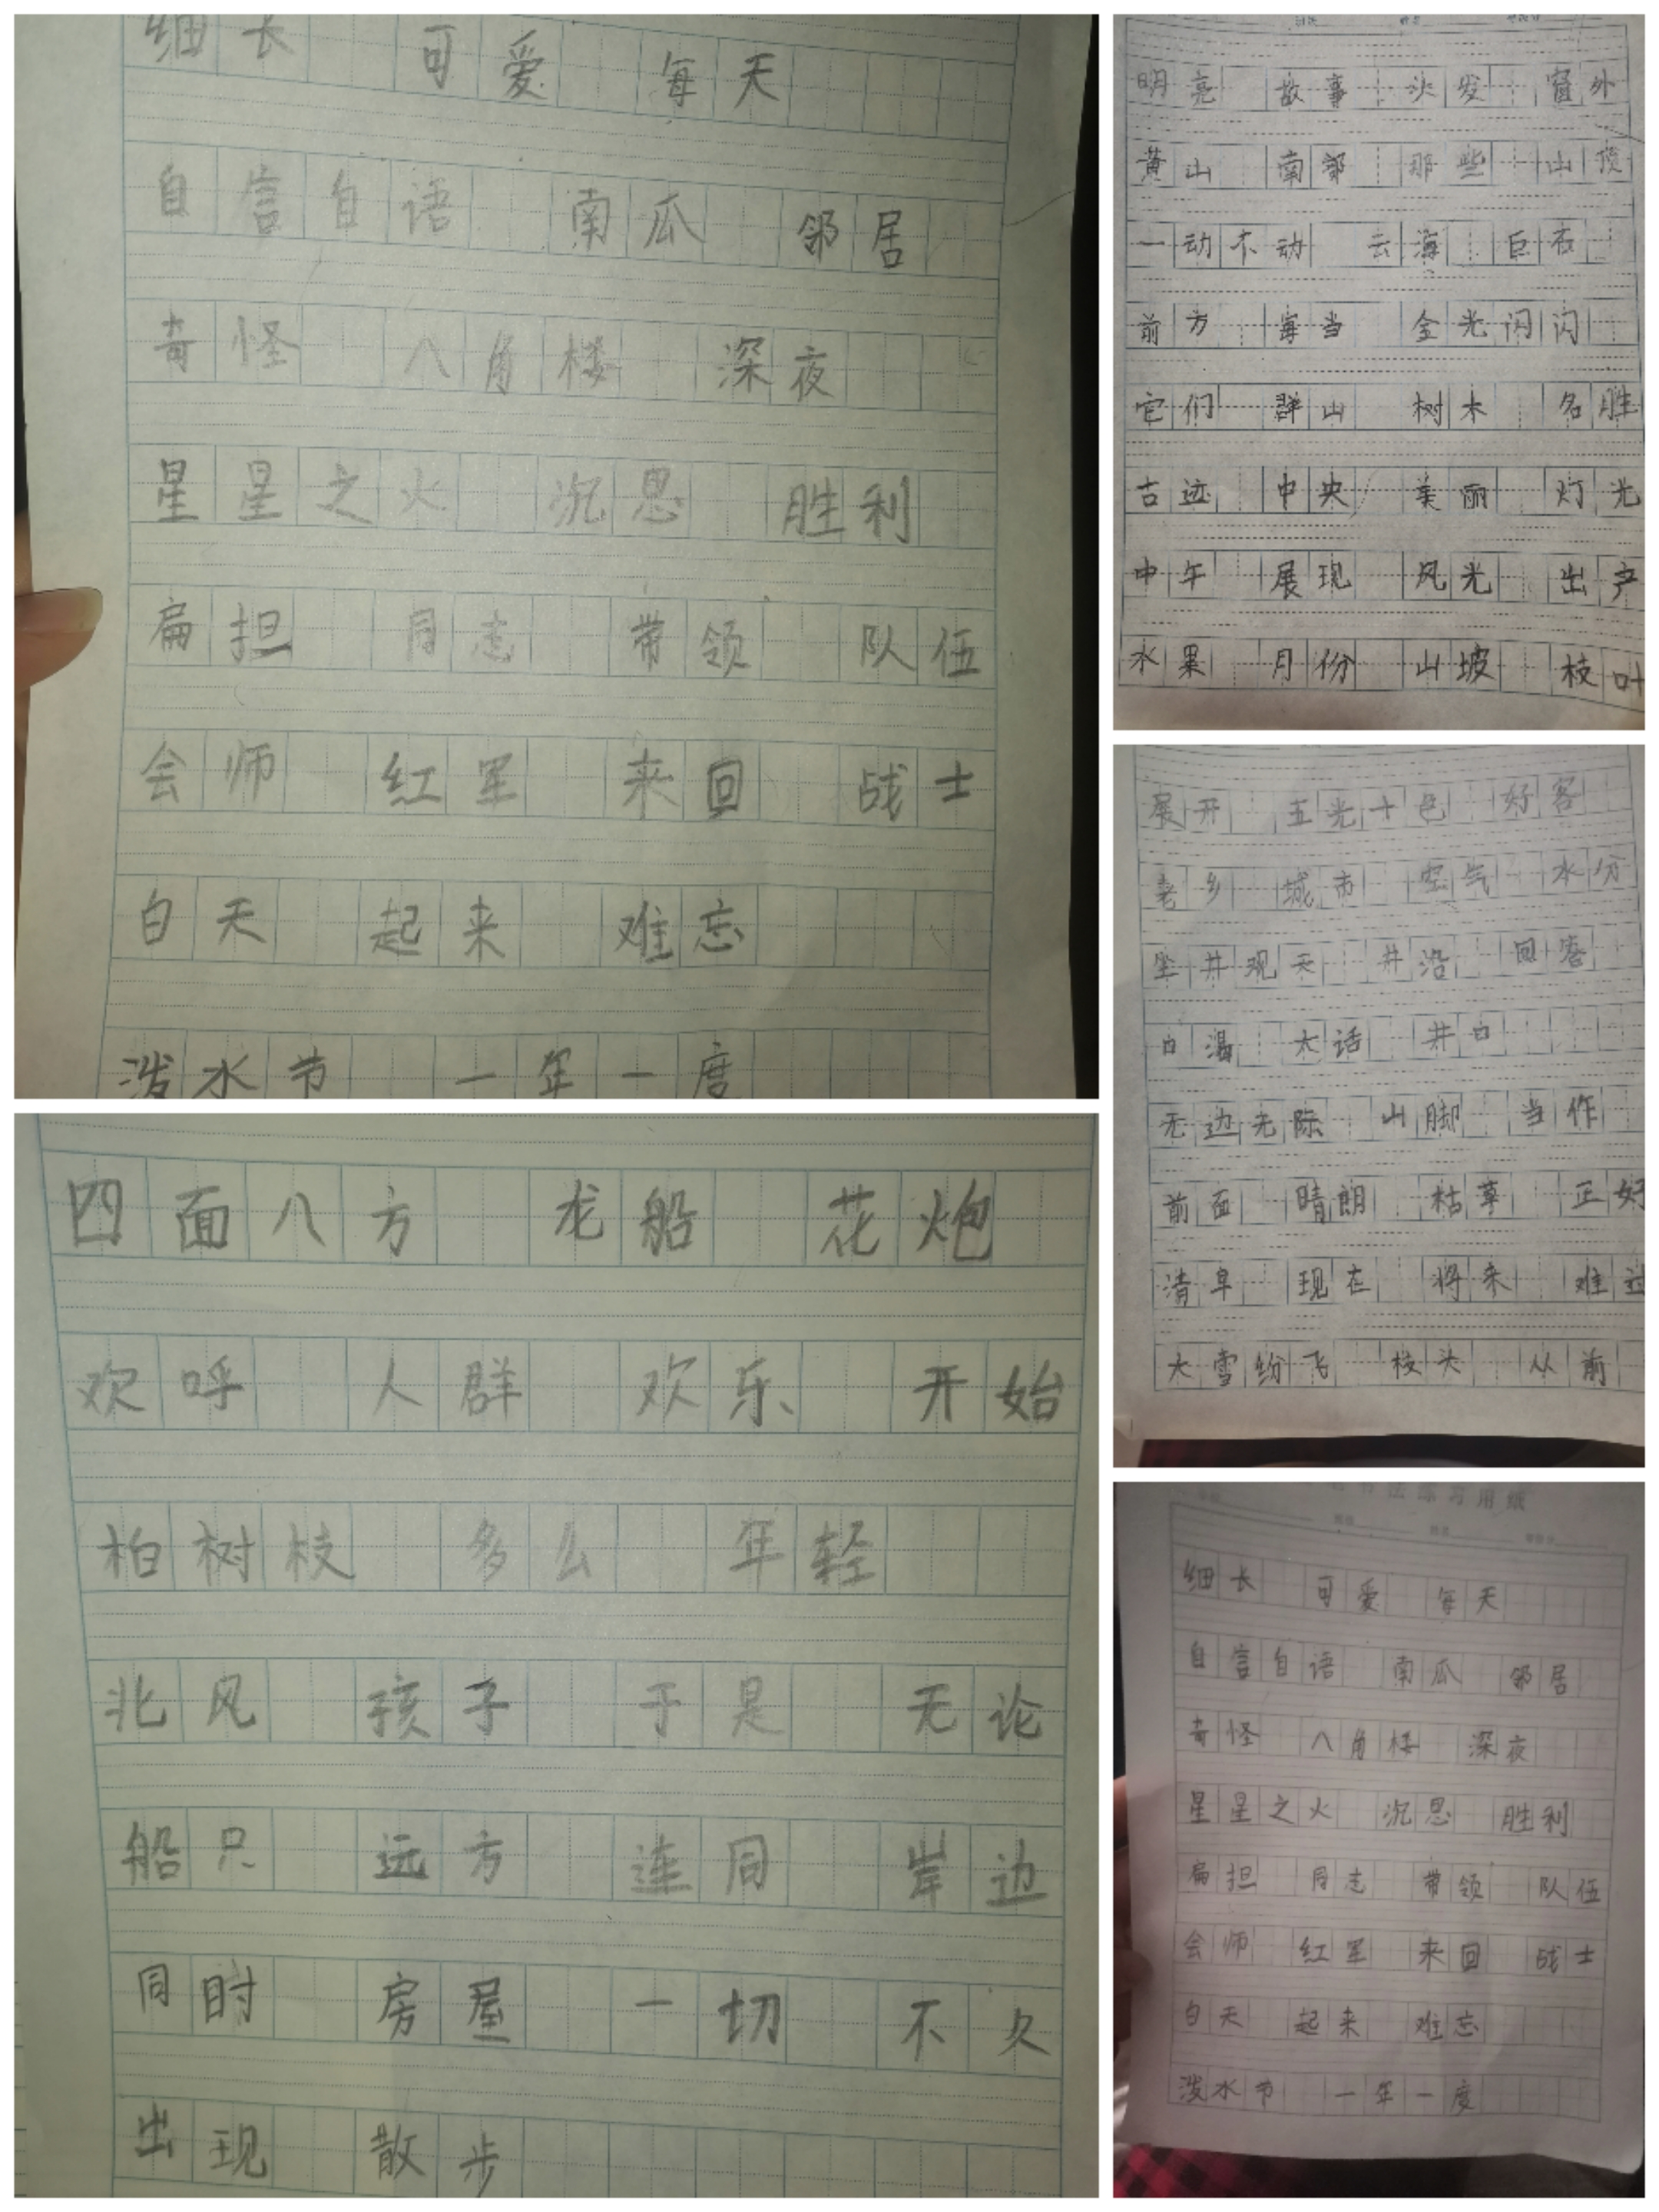 细长 可爱 每天
自言自语 南瓜 邻居
奇怪 八角楼 深夜
星星之火 沉思 胜利
扁担 同志 带领 队伍
会师 红军 来回 战士
白天 起来 难忘
泼水节 一年一度
四面八方 龙船 花炮
欢呼 人群 欢乐 开始
柏树枝 多么 年轻
北风 孩子 于是 无论
船只 远方 连同 岸边
同时 房屋 一切 不久
出现 散步
明亮 故事 头发 窗外
黄山 南部 那些 山顶
一动不动 云海 巨石
前方 每当 金光闪闪
它们 群山 树木 名胜
古迹 中央 美丽 灯光
中午 展现 风光 出产
水果 月份 山坡 枝叶
展开 五光十色 好客
老乡 城市 空气 水分
坐井观天 井沿 回答
口渴 大话 井口
无边无际 山脚 当作
前面 晴朗 枯草 正好
清早 现在 将来 难过
大雪纷飞 枝头 从前
书法练习用纸
细长 可爱 每天
自言自语 南瓜 邻居
奇怪 八角楼 深夜
星星之火 沉思 胜利
扁担 同志 带领 队伍
会师 红军 来回 战士
白天 起来 难忘
泼水节 一年一度